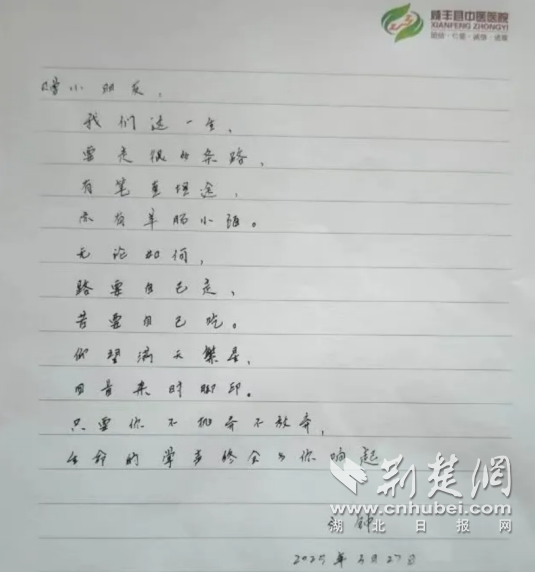 咸丰县中医医院
XIANFENG ZHONGYI
嗨小朋友，
我们这一生，
要走很多条路，
有笔直坦途，
亦有羊肠小陌。
无论如何，
路要自己走，
苦要自己吃。
仰望满天繁星，
回首来时脚印。
只要你不抛弃不放弃，
生命的掌声终会为你响起
荆楚网
www.cnhubei.com
湖北日报网
2025年3月27日